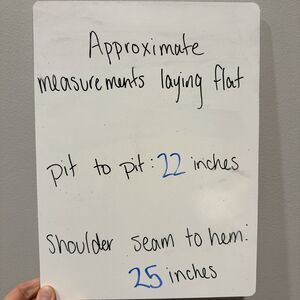 Approximate
measurements laying flat
pit to pit: 22 inches
shoulder seam to hem:
25 inches